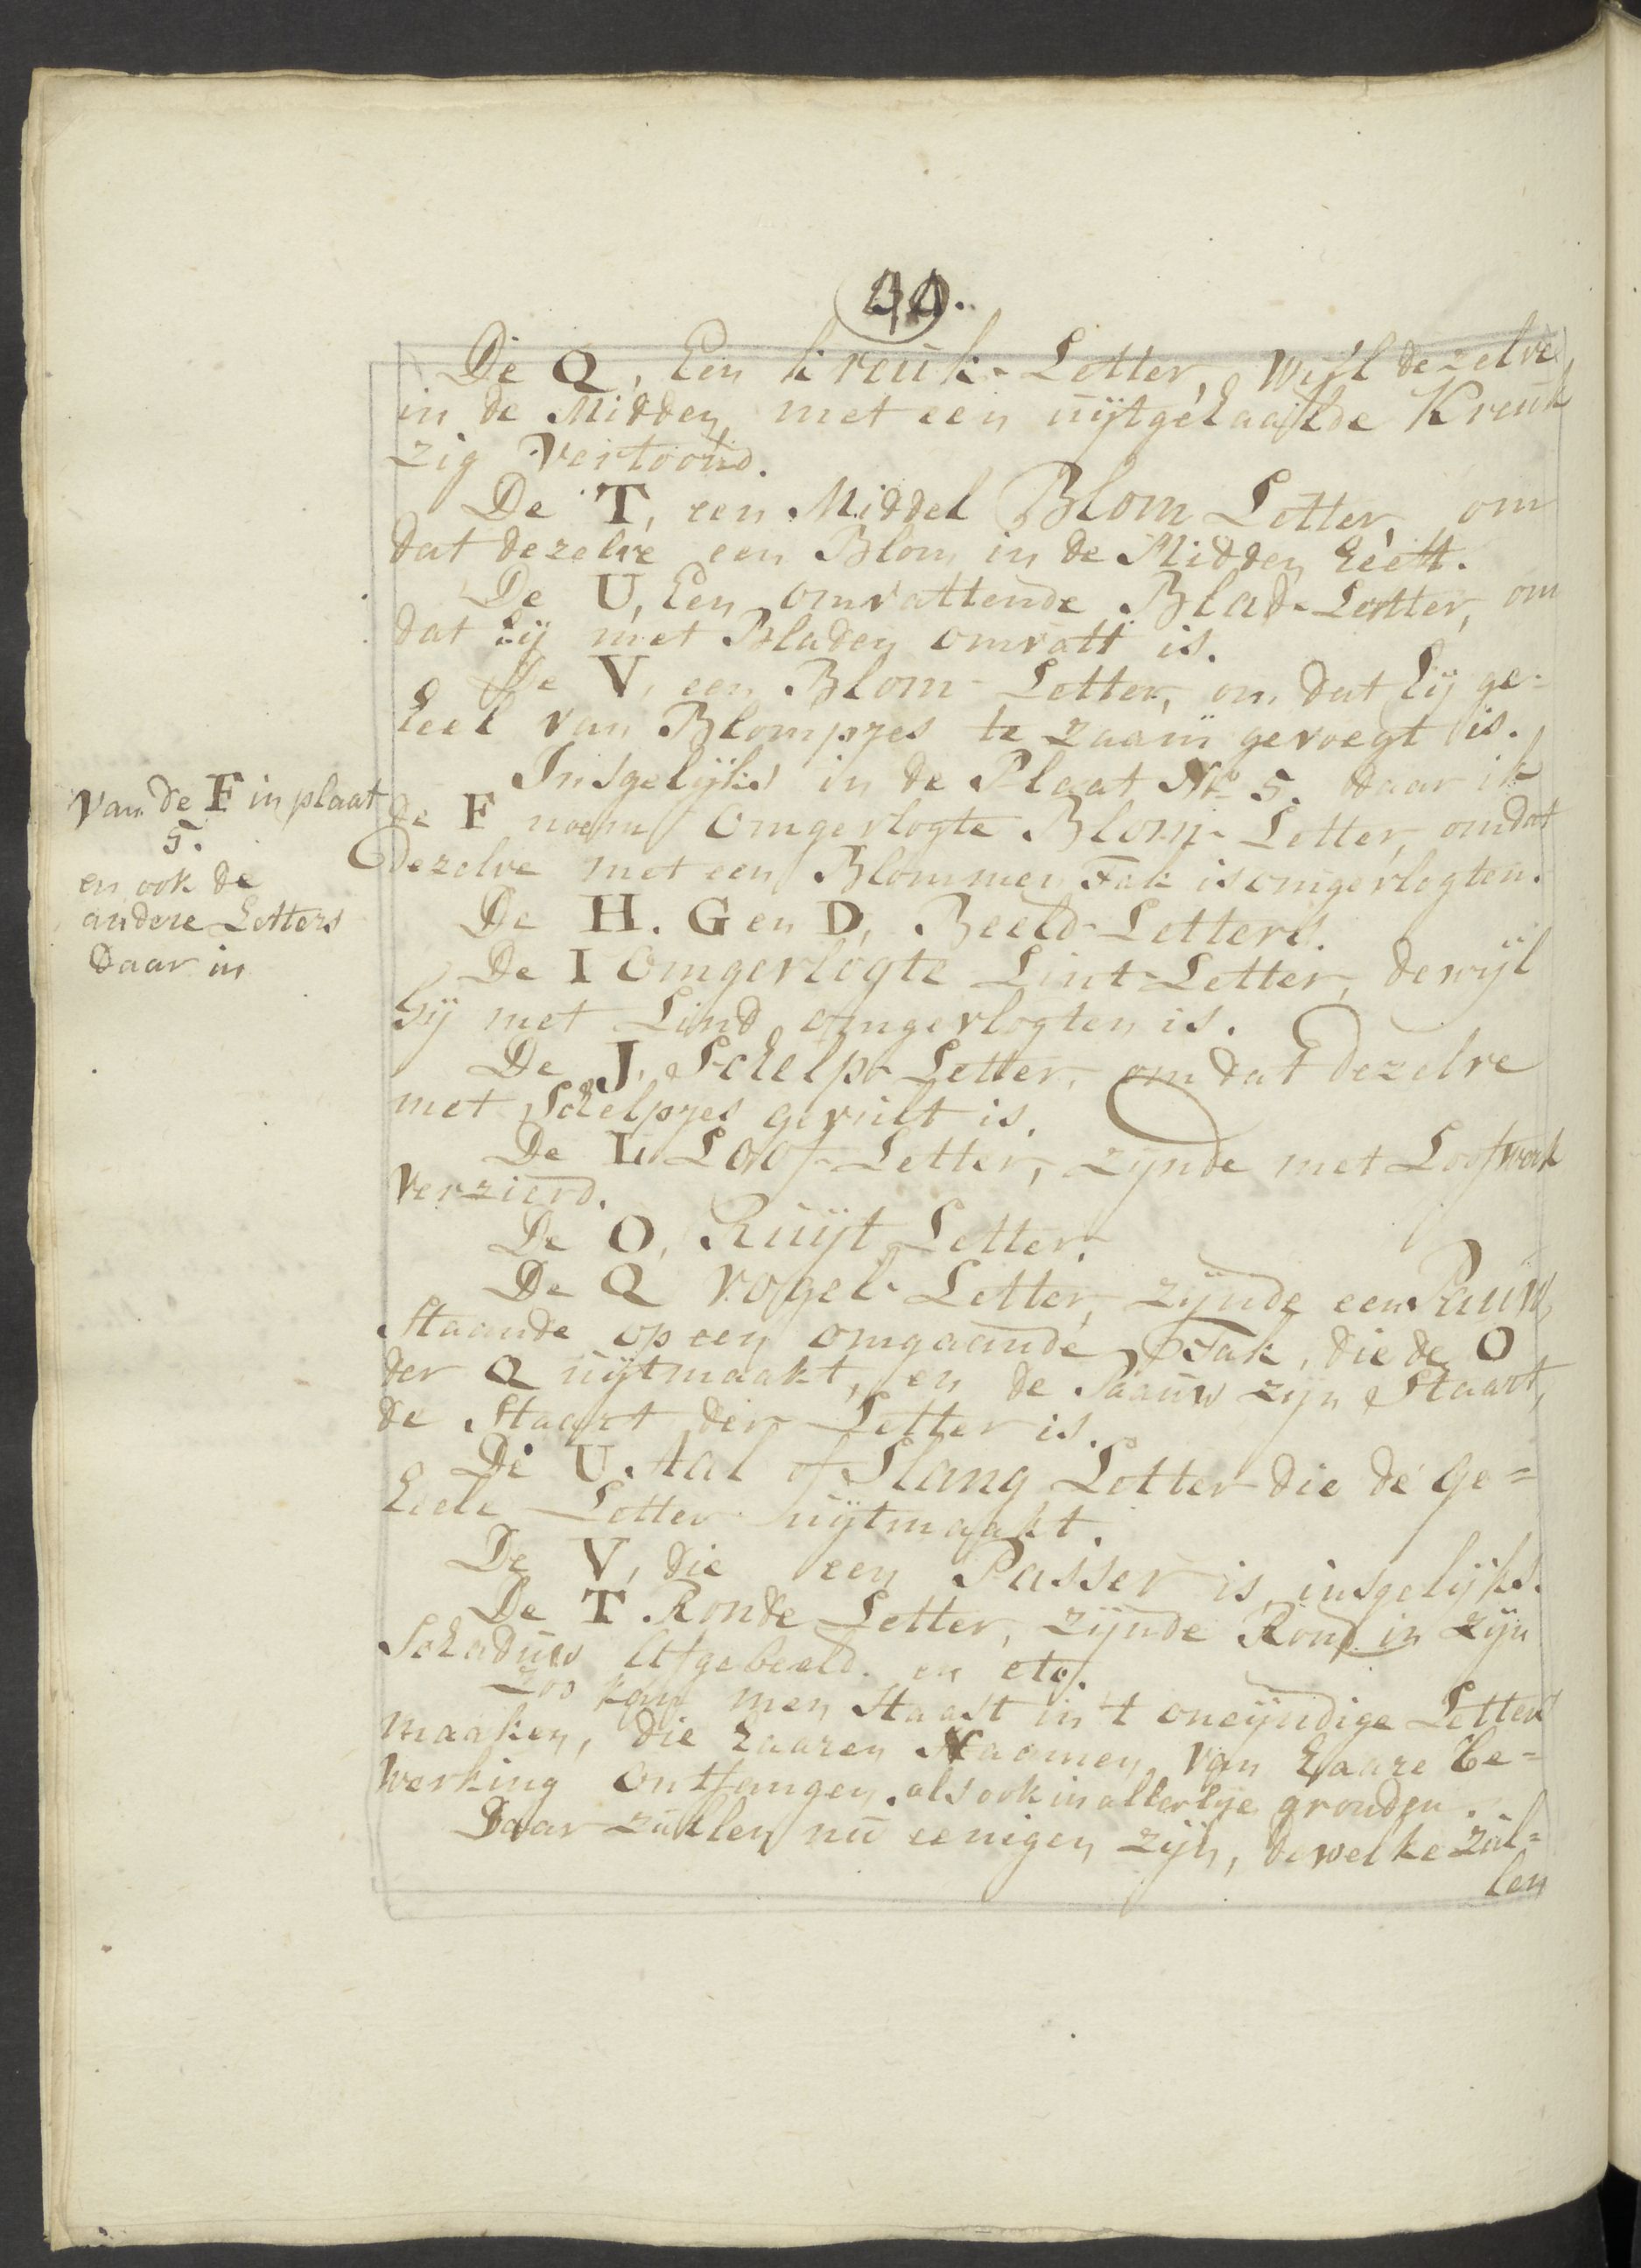 44.
De Q, Een kreuk-Letter, wijl dezelve
in de Midden, met een uijtgehaalde Kreuk
zig Vertoond.
De T, een Middel Blom Letter, om
dat dezelve een Blom in de Midden heeft.
De U, Een omvattende Blad-Letter, om
dat hij met Bladen omvatt is.
De V, een Blom-Letter, om dat hij ge-
heel van Blompjes te zaam gevoegt is.
Insgelijks in de Plaat No 5. daar ik
Van de F in plaat
5.
en ook de
andere Letters
Daar in
de F noem Omgevlogte Blom-Letter, omdat
Dezelve met een Blommen Tak is omgevlogten.
De H. G en D, Beeld-Letters.
De I Omgevlogte Lint-Letter, dewijl
hij met Lind omgevlogten is.
De J, Schelp-Letter, omdat dezelve
met Schelpjes gevult is.
De L, Loof-Letter, zijnde met Loofwerk
Verzierd.
De O, Ruijt Letter.
De Q Vogel-Letter, zijnde een Pauw,
Staande op een omgaande Tak, die de O
der Q uijtmaakt, en de Paauw zijn Staart,
de Staart der Letter is.
De U. Aal of Slang Letter die de ge=
heele Letter uijtmaakt.
De V, die een Passer is, insgelijks.
De T Ronde Letter, zijnde Rond in zijn
Schaduw Afgebeeld. en etc.
Zoo kan men Haast in 't oneijndige Letters
maaken, die haaren Naamen van haare be=
werking ontfangen. als ook in allerlije gronden.
Daar zullen nu eenigen zijn, dewelke zul=
len